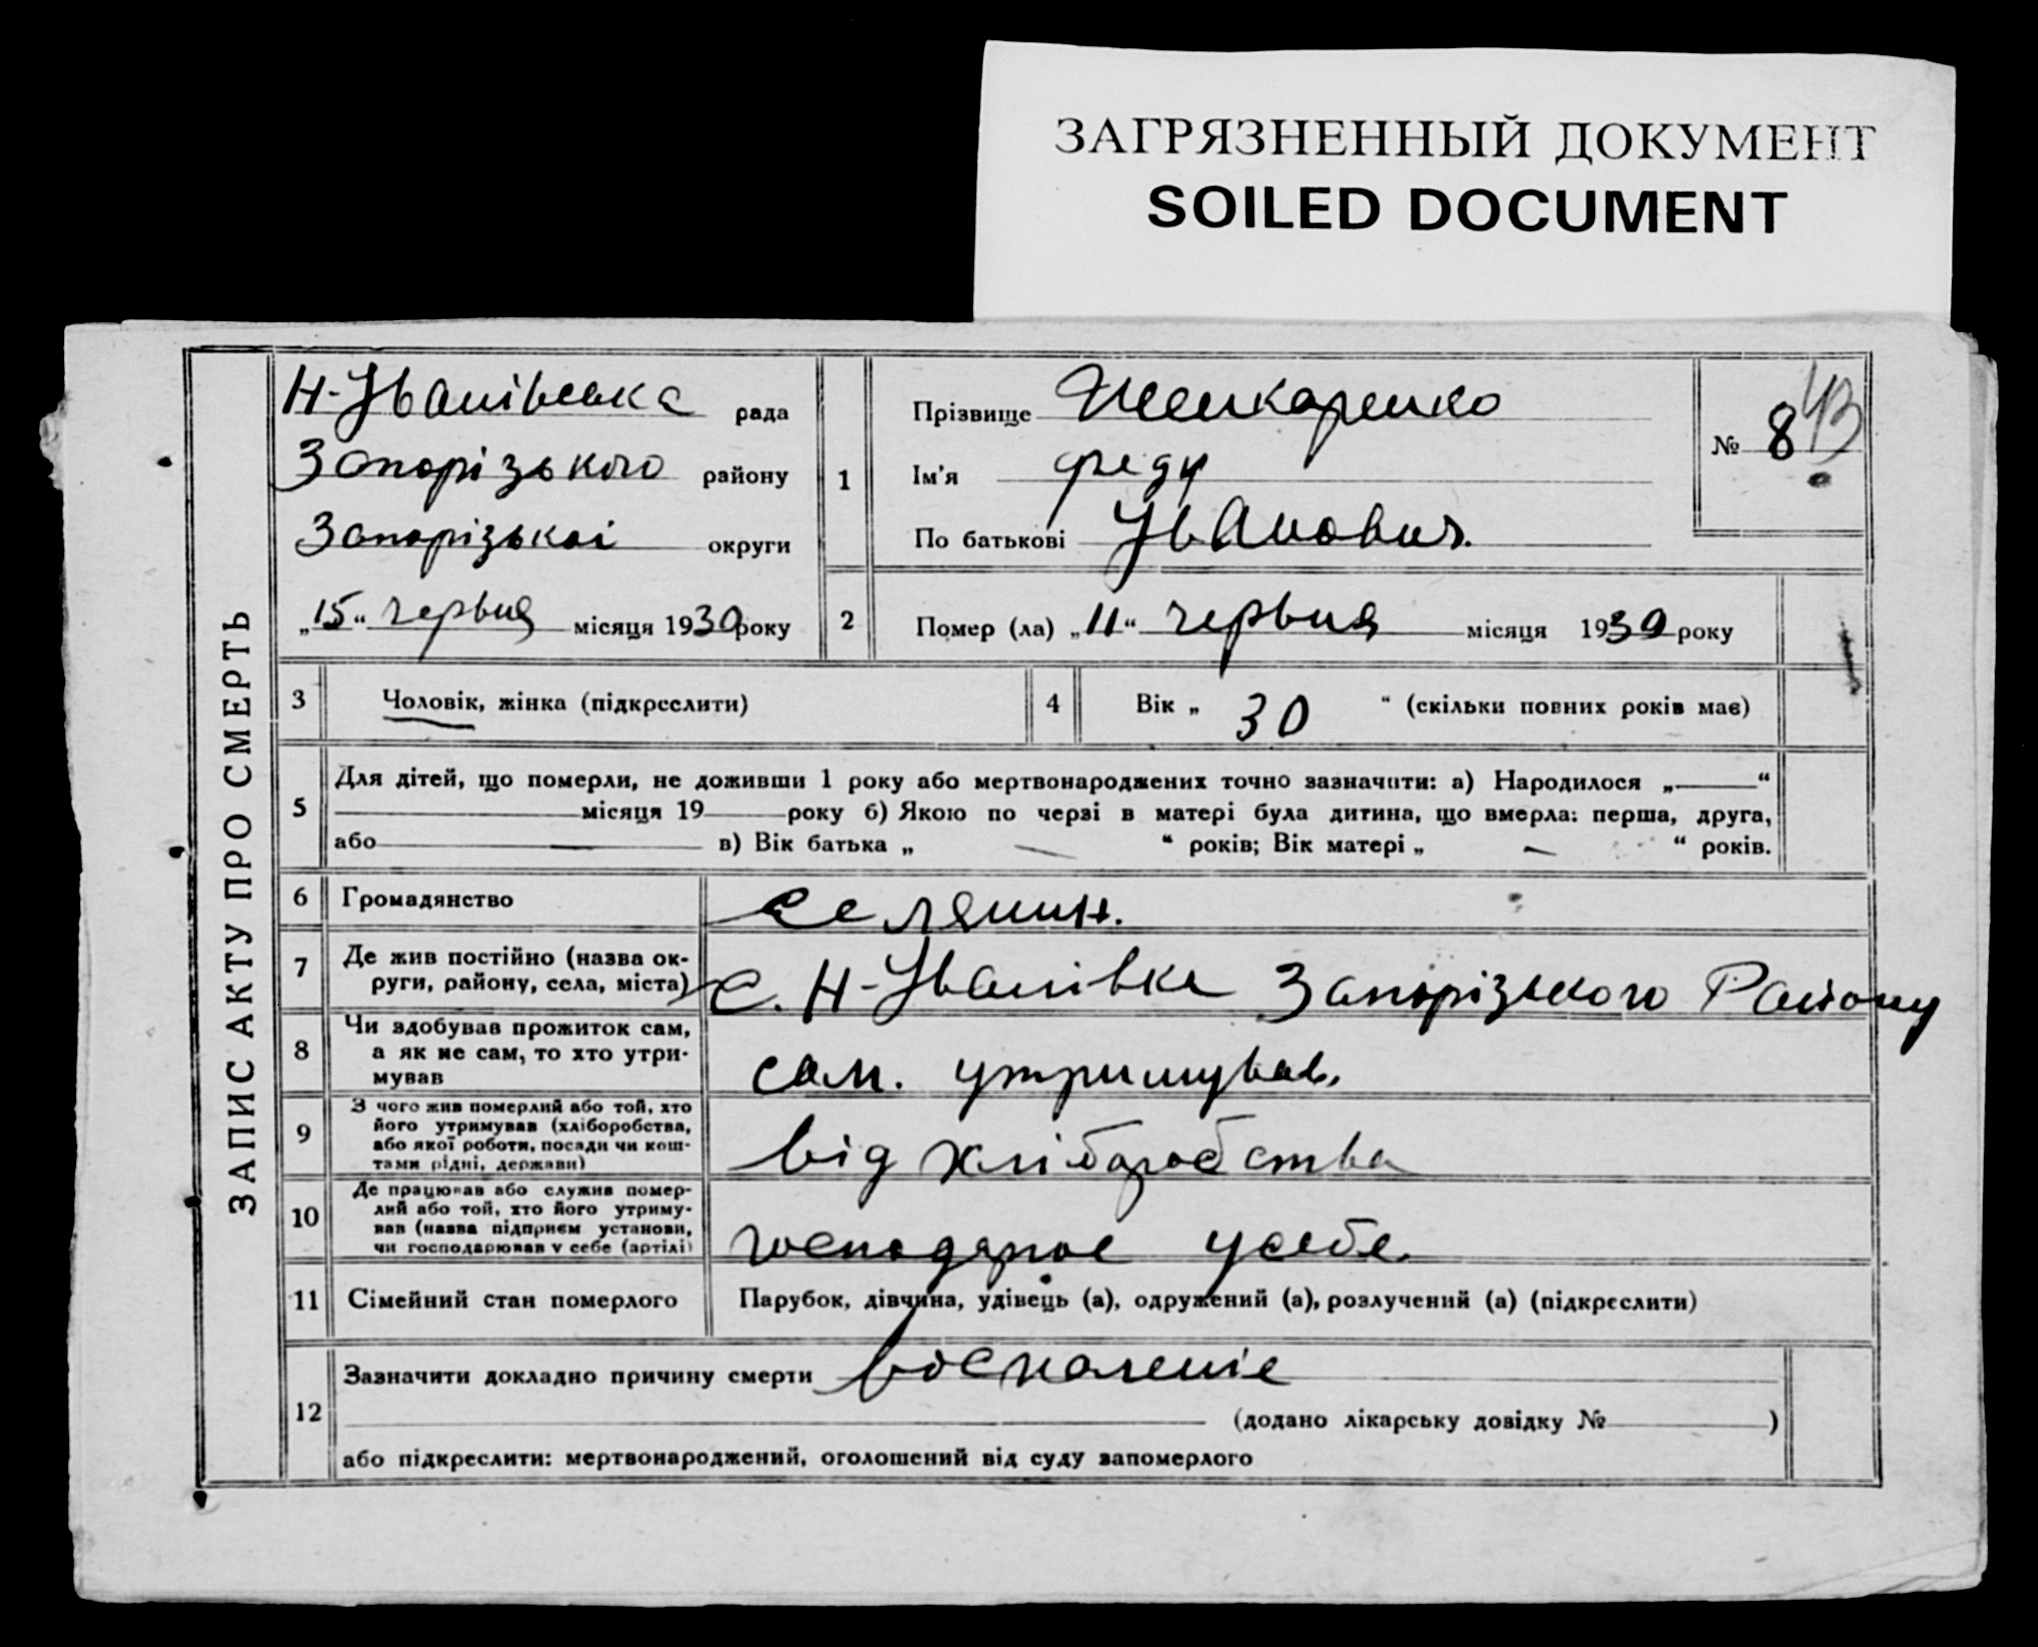 ЗАГРЯЗНЕННЫЙ ДОКУМЕНТ
SOILED DOCUMENT
ЗАПИС АКТУ ПРО СМЕРТЬ
Н-Іванівська рада
Запорізького району
Запорізькоі округи
„15“ червня місяця 1930 року
1
Прізвище
Ім'я
По батькові Іванович.
№ 8
43
2 Помер (ла) „11“ червня місяця 1930 року
3 Чоловік, жінка (підкреслити)
4 Вік „ 30 “ (скільки повних років має)
5 Для дітей, що померли, не доживши 1 року або мертвонароджених точно зазначити: а) Народилося „ “
місяця 19 року б) Якою по черзі в матері була дитина, що вмерла: перша, друга,
або в) Вік батька „ — “ років; Вік матері „ — “ років.
6 Громадянство селянин.
7 Де жив постійно (назва ок-
руги, району, села, міста) с. Н-Іванівка Запорізького Району
8 Чи здобував прожиток сам,
а як не сам, то хто утри-
мував сам. утримував.
9 З чого жив померлий або той, хто
його утримував (хліборобства,
або якої роботи, посади чи кош-
тами рідні, держави) від хліборобства
10 Де працював або служив помер-
лий або той, хто його утриму-
вав (назва підприєм установи,
чи господарював у себе (артілі) усебе.
11 Сімейний стан померлого Парубок, дівчина, удівець (а), одружений (а), розлучений (а) (підкреслити)
12 Зазначити докладно причину смерти воспаленіе
(додано лікарську довідку № )
або підкреслити: мертвонароджений, оголошений від суду запомерлого